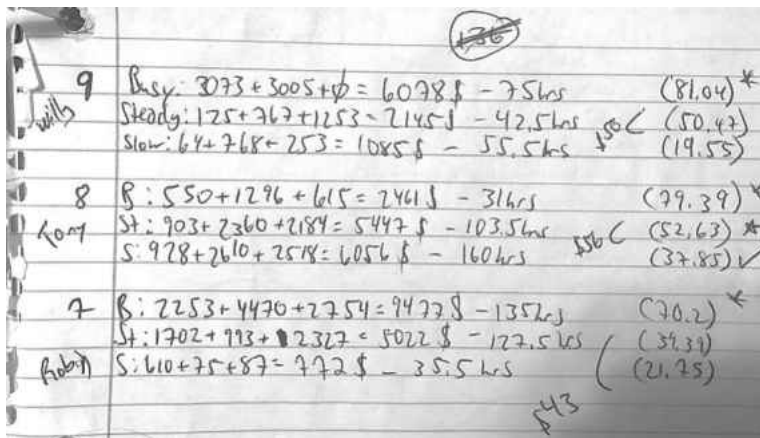 136
9 Busy: 3073 + 3005 + ϕ = 6078 $ - 75hrs (81.04) *
Willy Steady: 125 + 767 + 1253 = 2145 $ - 42.5hrs $50 ( (50.47)
Slow: 64 + 768 + 253 = 1085 $ - 55.5hrs (19.55)
8 B: 550 + 1296 + 615 = 2461 $ - 31hrs (79.39) *
Tony St: 903 + 2360 + 2184 = 5447 $ - 103.5hrs $56 ( (52.63) *
S: 928 + 2610 + 2518 = 6056 $ - 160hrs (37.85) ✓
7 B: 2253 + 4470 + 2754 = 9477 $ - 135hrs (70.2) *
St: 1702 + 993 + 2327 = 5022 $ - 127.5hrs (39.39)
Robin S: 610 + 75 + 87 = 772 $ - 35.5hrs ( (21.75)
$43